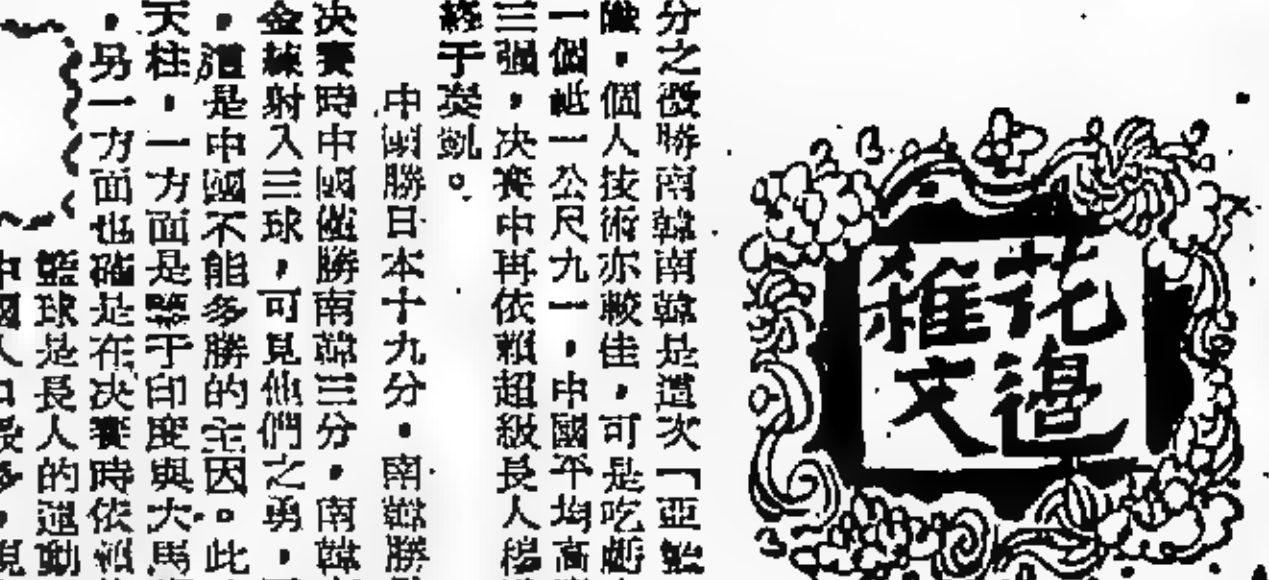 花邊
雜文
分之微勝南韓南韓是這次「亞籃
，個人技術亦較佳，可是吃虧
一個祗一公尺九一，中國平均高
三强，决賽中再依賴超級長人穆
終于奏凱。
中國勝日本十九分，南韓勝
决賽時中國僅勝南韓三分，南韓
金練射入三球，可見他們之勇，
，這是中國不能多勝的主因。此
天柱，一方面是鑒于印度與大馬
，另一方面也確是在决賽時依賴
籃球是長人的運動
中國人口最多，現